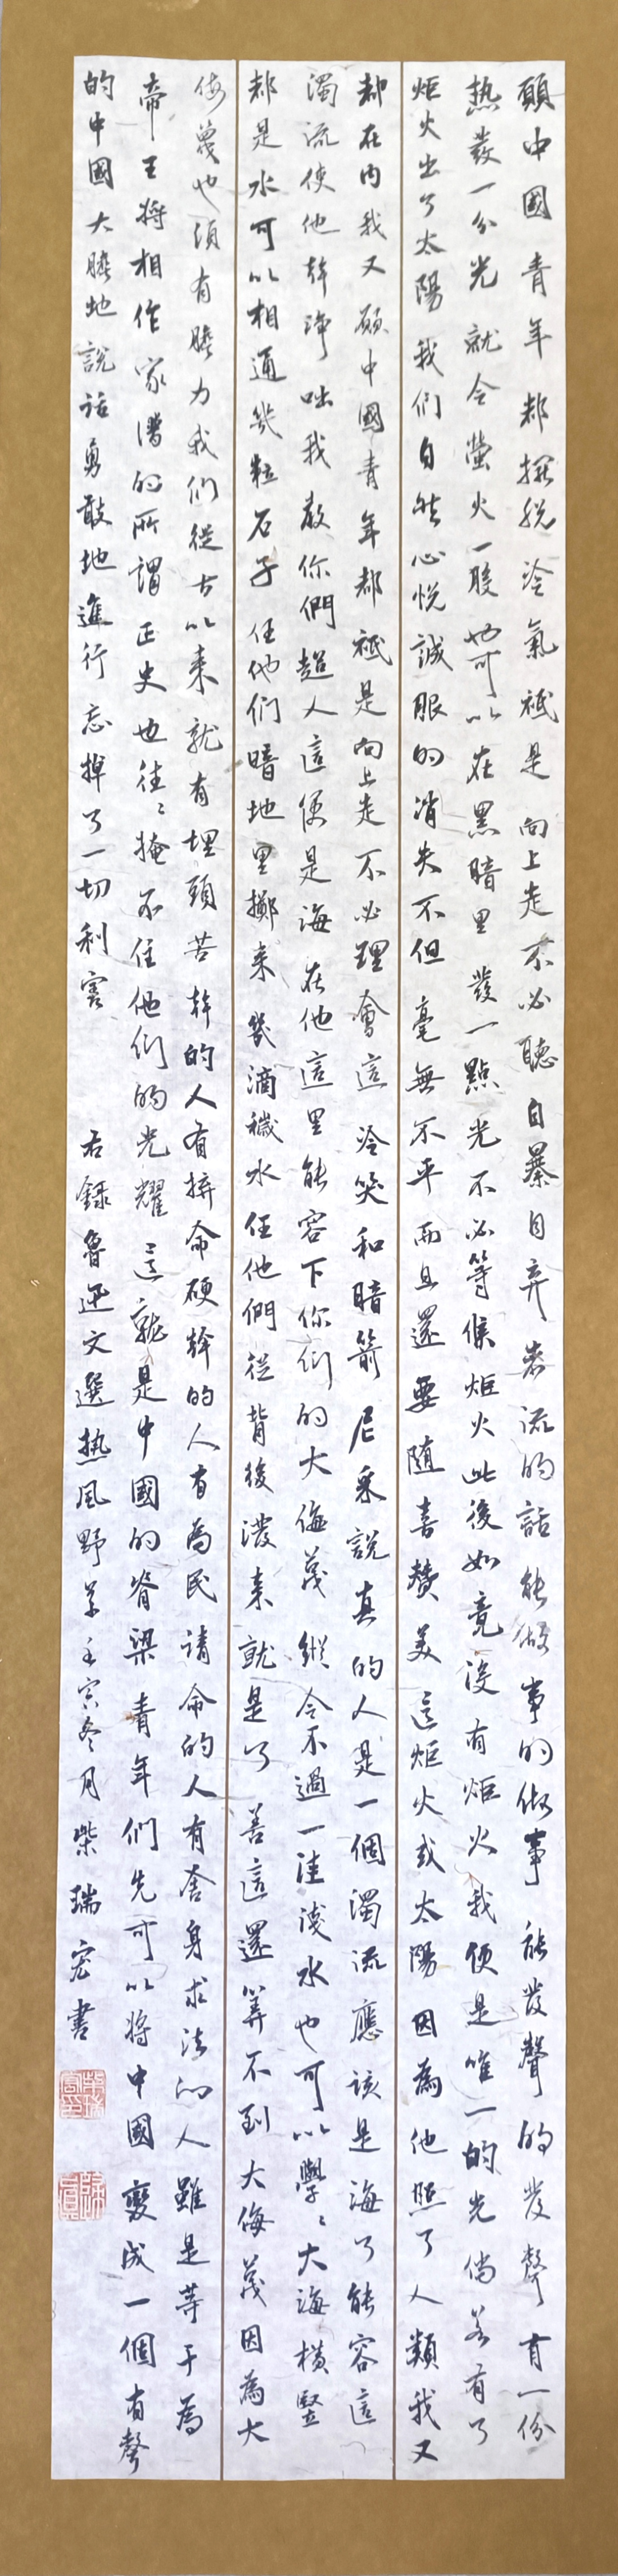 願中國青年都擺脫冷氣祗是向上走不必聽自暴自弃者流的話能做事的做事能發聲的發聲有一份
热發一分光就令螢火一般也可以在黑暗里發一點光不必等候炬火此後如竟没有炬火我便是唯一的光倘若有了
炬火出了太陽我们自然心悦誠服的消失不但毫無不平而且還要随喜赞美這炬火或太陽因為他照了人類我又
都在内我又願中國青年都祗是向上走不必理會這冷笑和暗箭尼采說真的人是一個濁流應该是海了能容這
濁流使他幹净咄我教你們超人這便是海在他這里能容下你们的大侮蔑縱令不過一洼淺水也可以學〻大海横豎
都是水可以相通幾粒石子任他们暗地里擲来幾滴穢水任他們從背後潑来就是了善這還算不到大侮蔑因為大
侮蔑也須有膽力我们從古以来就有埋頭苦幹的人有拚命硬幹的人有為民請命的人有舍身求法的人雖是等于為
帝王将相作家譜的所謂正史也往〻掩不住他们的光耀這就是中國的脊梁青年们先可以将中國變成一個有聲
的中國大膽地說话勇敢地進行忘掉了一切利害 右録魯迅文選热风野草壬寅冬月柴瑞宏書